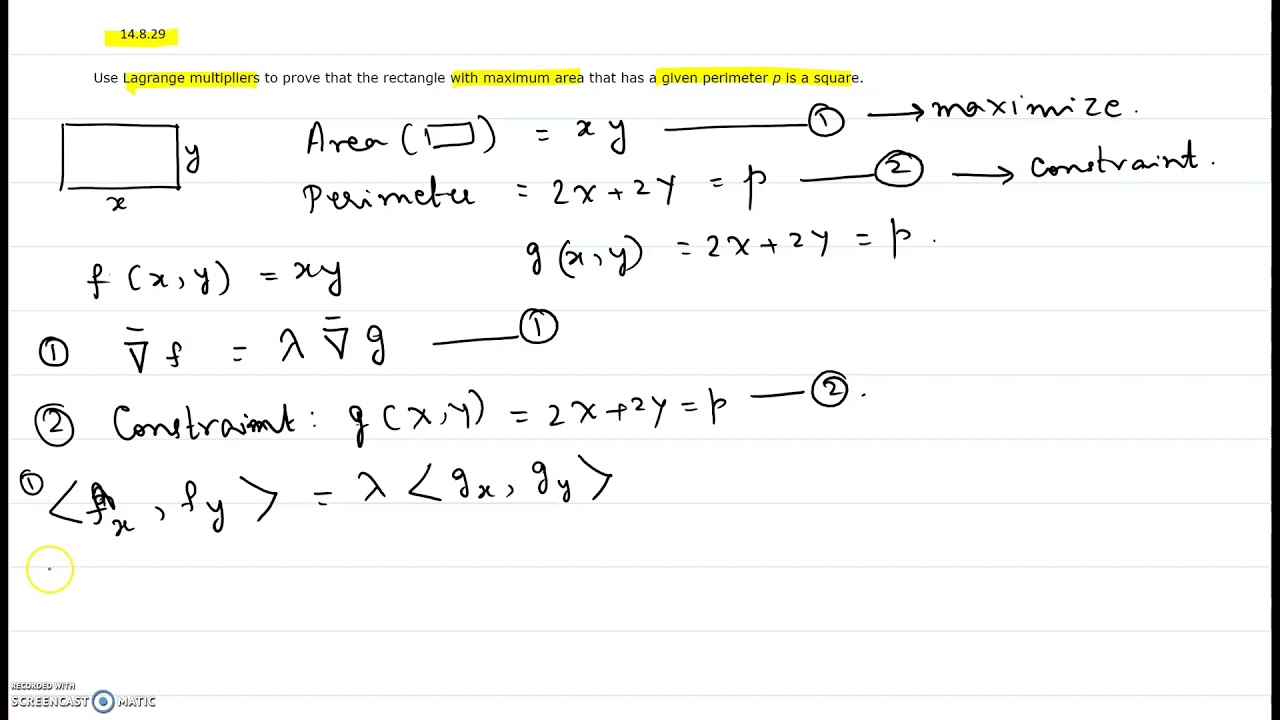 14.8.29
Use Lagrange multipliers to prove that the rectangle with maximum area that has a given perimeter p is a square.
Area (▭) = xy —— ① → maximize.
y
Perimeter = 2x + 2y = p —— ② → Constraint.
x
g(x, y) = 2x + 2y = p.
f(x, y) = xy
① ∇̄f = λ ∇̄g —— ①
② Constraint: g(x, y) = 2x + 2y = p —— ②.
① <f_x, f_y> = λ <g_x, g_y>
RECORDED WITH
SCREENCAST MATIC